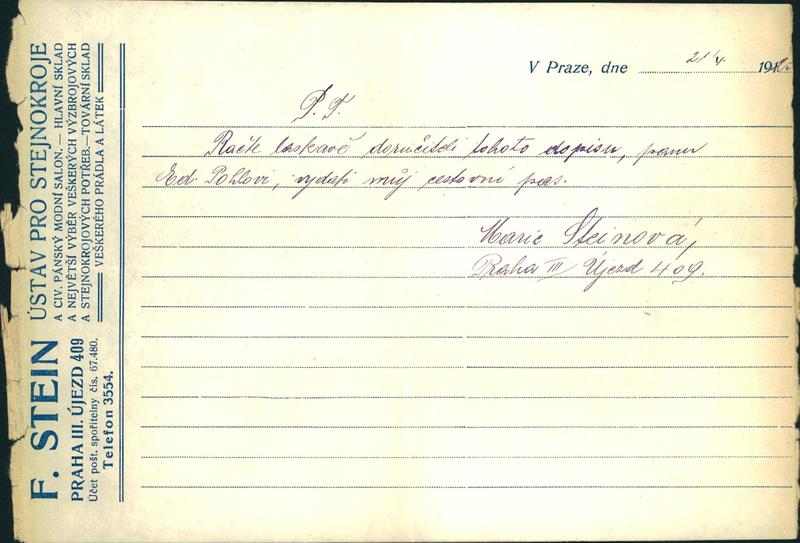 F. STEIN
PRAHA III. ÚJEZD 409
Účet pošt. spořitelny čís. 67.480.
Telefon 3554.
ÚSTAV PRO STEJNOKROJE
A CIV. PÁNSKÝ MODNÍ SALON. — HLAVNÍ SKLAD
A NEJVĚTŠÍ VÝBĚR VEŠKERÝCH VÝZBROJOVÝCH
A STEJNOKROJOVÝCH POTŘEB.—TOVÁRNÍ SKLAD
VEŠKERÉHO PRÁDLA A LÁTEK
V Praze, dne 21/4 19
P. T.
Račte laskavě doručiteli tohoto dopisu, panu
Ed. Pohlovi, vydati můj cestovní pas.
Marie Steinová,
Praha III Újezd 409.